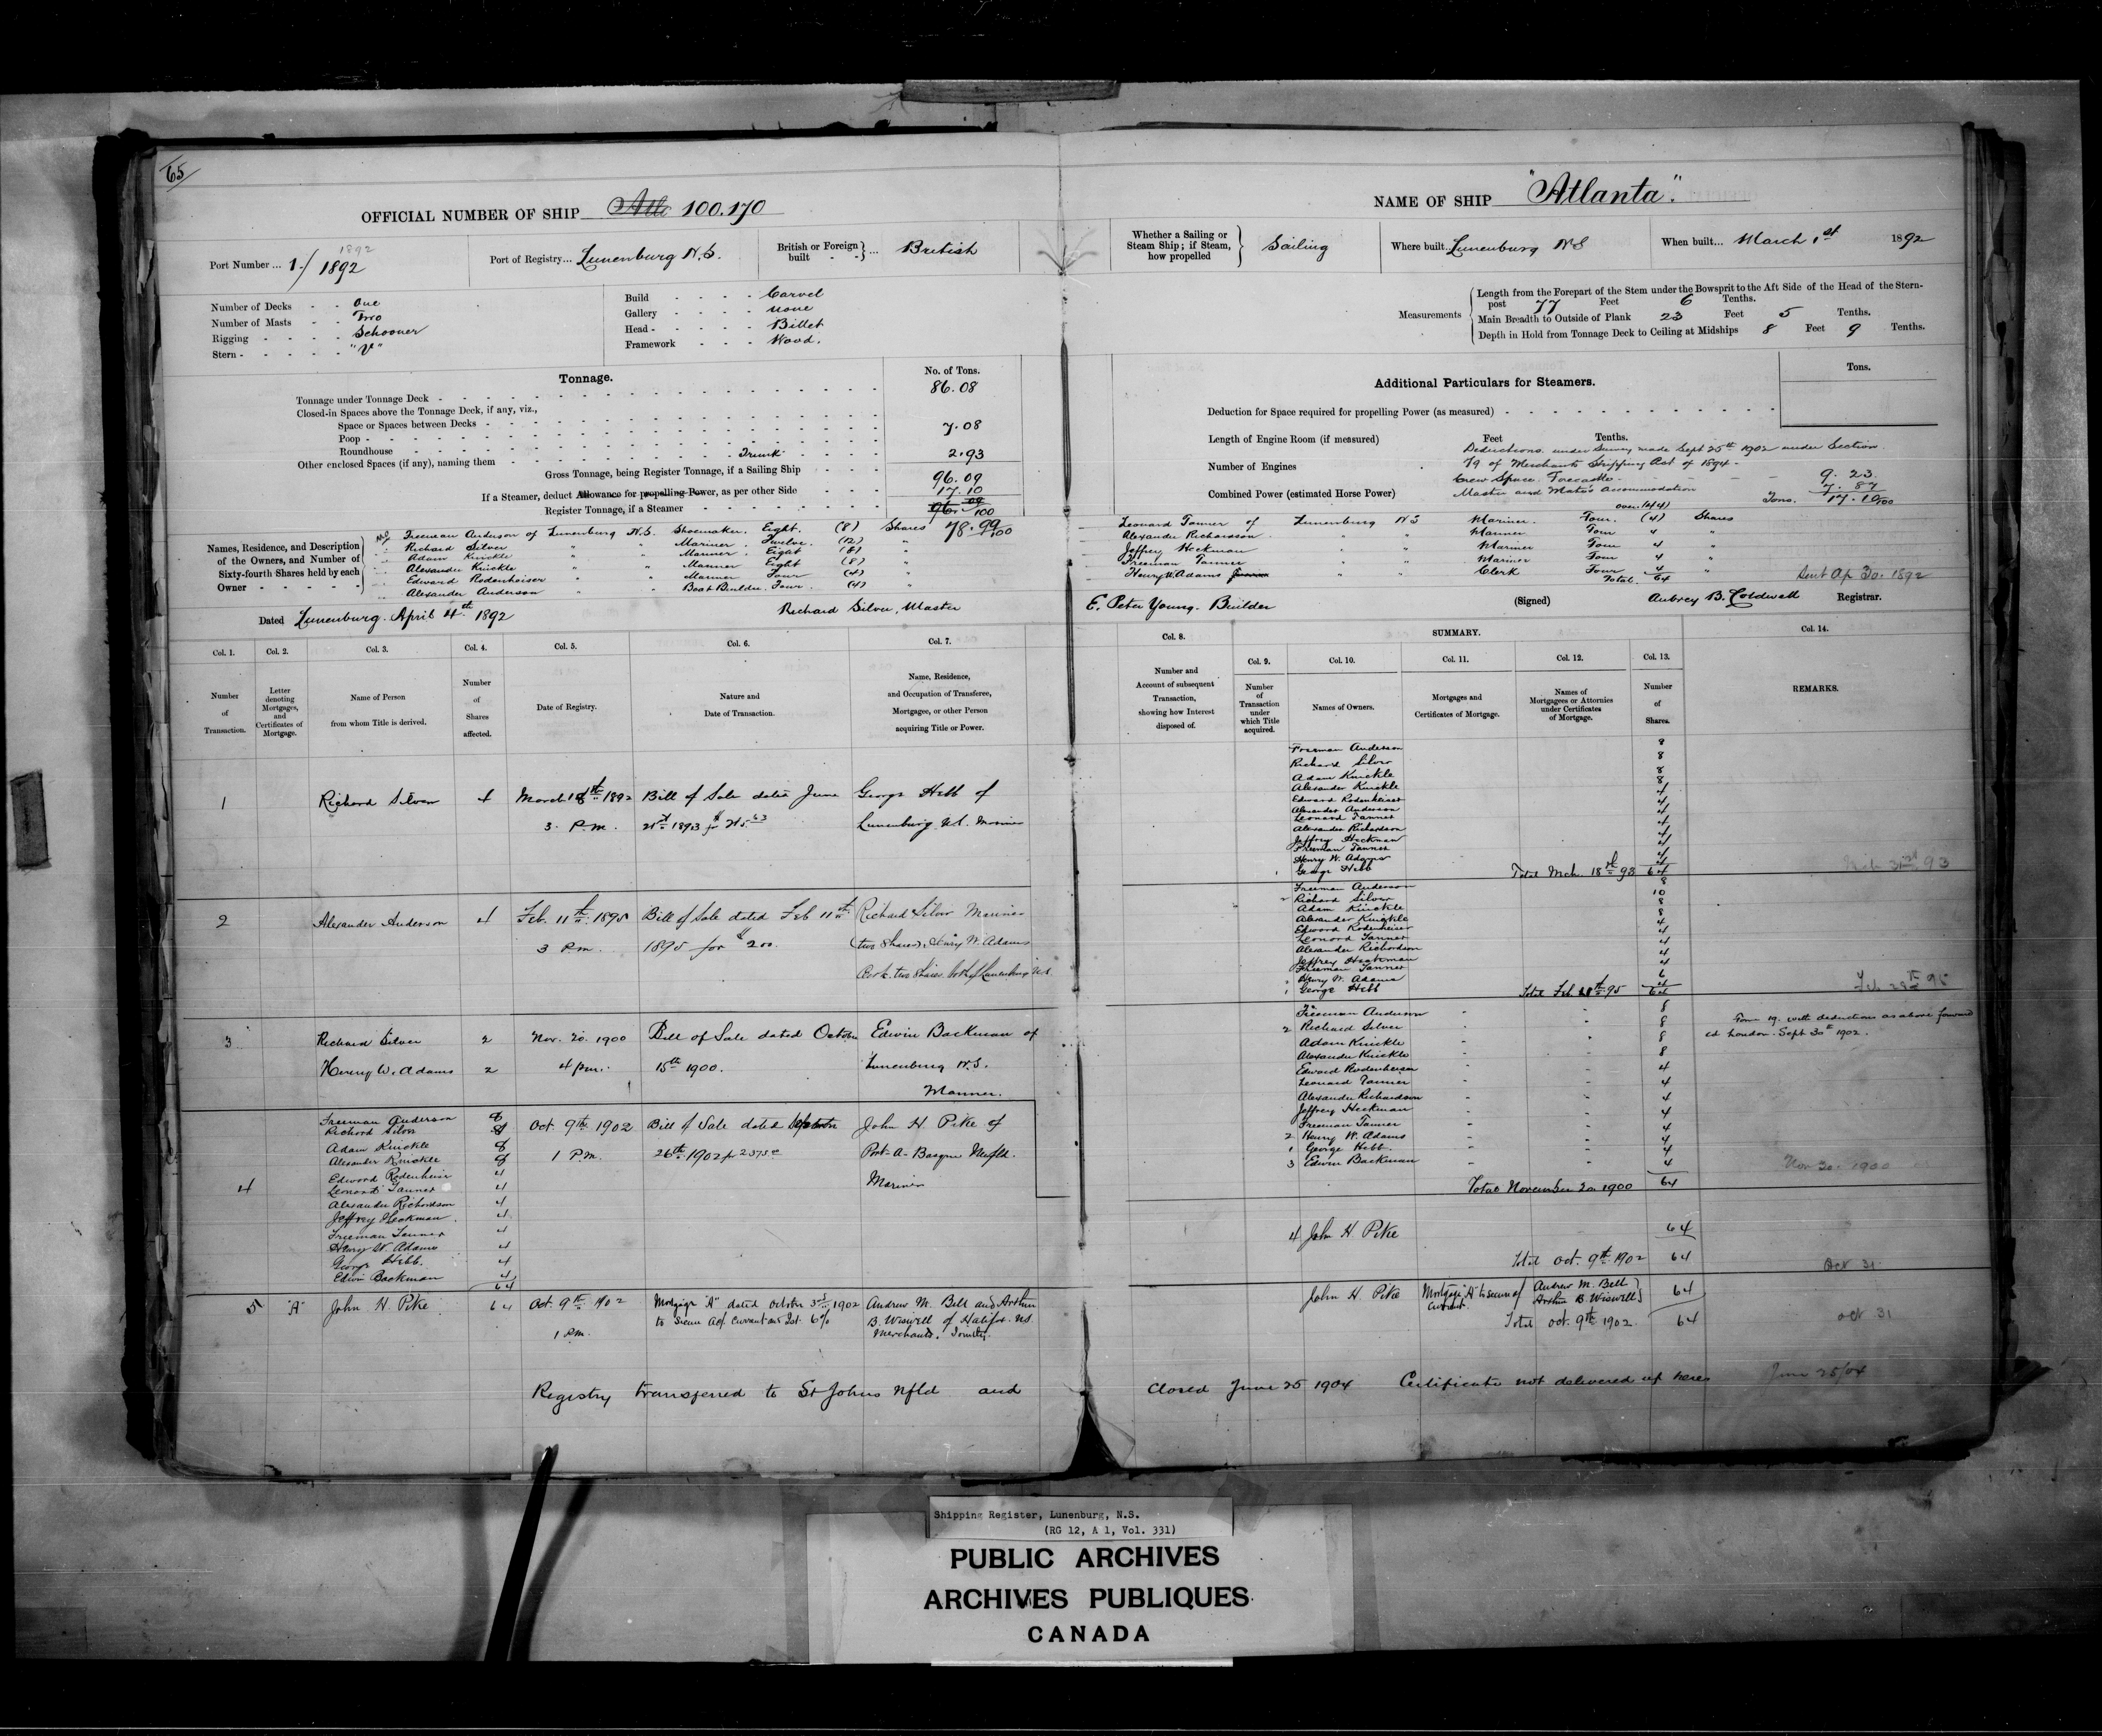 65
OFFICIAL NUMBER OF SHIP 100.170
Port Number ... 1./1892
1892
Port of Registry... Lunenburg N.S.
British or Foreign built ... British
Number of Decks - - One
Number of Masts - - Two
Rigging - - - - Schooner
Stern - - - - - "V"
Build - - - - Carvel
Gallery - - - - none
Head - - - - Billet
Framework - - - Wood.
Tonnage.
No. of Tons.
Tonnage under Tonnage Deck - 86.08
Closed-in Spaces above the Tonnage Deck, if any, viz.,
Space or Spaces between Decks - 7.08
Poop -
Roundhouse
Other enclosed Spaces (if any), naming them - Trunk - 2.93
Gross Tonnage, being Register Tonnage, if a Sailing Ship - - - 96.09
If a Steamer, deduct Allowance for propelling Power, as per other Side - - - 17.10
Register Tonnage, if a Steamer - - - - - - 96. 09/100
78.99/100
Names, Residence, and Description of the Owners, and Number of Sixty-fourth Shares held by each Owner - - - -
Freeman Anderson of Lunenburg N.S. Shoemaker. Eight. (8) Shares
Richard Silver " " Mariner. Twelve. (12) "
Adam Knickle " " Mariner. Eight (8) "
Alexander Knickle " " Mariner Eight (8) "
Edward Rodenheiser " " Mariner Four (4) "
Alexander Anderson " " Boat Builder. Four (4) "
Dated Lunenburg. April 4th 1892
Richard Silver, Master
Col. 1.
Number of Transaction.
Col. 2.
Letter denoting Mortgages, and Certificates of Mortgage.
Col. 3.
Name of Person from whom Title is derived.
Col. 4.
Number of Shares affected.
Col. 5.
Date of Registry.
Col. 6.
Nature and Date of Transaction.
Col. 7.
Name, Residence, and Occupation of Transferee, Mortgagee, or other Person acquiring Title or Power.
1 Richard Silver 4 March 18th 1892 Bill of Sale dated June George Hebb of
3. P.m. 21st 1893 for Lunenburg N.S. Mariner
2 Alexander Anderson 4 Feb. 11th 1895 Bill of Sale dated Feb 11th Richard Silver Mariner
3 P.m. 1895 for $200. (two Shares), Henry W. Adams
Clerk. two Shares. both of Lunenburg N.S.
3 Richard Silver 2 Nov. 20. 1900 Bill of Sale dated October Edwin Backman of
Henery W. Adams 2 4 pm. 15th 1900. Lunenburg N.S.
Mariner.
4
Freeman Anderson 8
Richard Silver 8
Adam Knickle 8
Alexander Knickle 8
Edward Rodenheiser 4
Leonard Tanner 4
Alexander Richardson 4
Jeffrey Heckman. 4
Freeman Tanner 4
Henry W. Adams 4
George Hebb. 4
Edwin Backman 4
64
Oct 9th 1902 Bill of Sale dated John H Pike of
1 P.M. 26th 1902 for Port-A-Basque Newfld.
Mariner
5 "A" John H. Pike 64 Oct. 9th 1902 Mortgage "A" dated October 3rd 1902 Andrew M. Bell and Arthur
1 P.m. to Secure A/c Current and Int. 6% B. Wiswell of Halifax. N.S.
Merchants. Jointly.
Registry transferred to St Johns Nfld and
NAME OF SHIP "Atlanta".
Whether a Sailing or Steam Ship; if Steam, how propelled Sailing
Where built.. Lunenburg NS
When built... March 1st 1892
Measurements
Length from the Forepart of the Stem under the Bowsprit to the Aft Side of the Head of the Stern-
post 77 Feet 6 Tenths.
Main Breadth to Outside of Plank 23 Feet 5 Tenths.
Depth in Hold from Tonnage Deck to Ceiling at Midships 8 Feet 9 Tenths.
Additional Particulars for Steamers.
Tons.
Deduction for Space required for propelling Power (as measured) -
Length of Engine Room (if measured) Feet Tenths.
Number of Engines
Combined Power (estimated Horse Power)
Deductions. under Survey made Sept 25th 1902 under Section
79 of Merchants Shipping Act of 1894 -
Crew Space. Forecastle - 9.23
Master and Mate's accommodation 7.87
Tons. 17.10/100
over (44)
Leonard Tanner of Lunenburg NS Mariner. Four. (4) Shares
Alexander Richardson. " " Mariner Four 4 "
Jeffrey Heckman " " Mariner Four 4 "
Freeman Tanner " " Mariner Four 4 "
Henry W. Adams " " Clerk Four 4 "
Total. 64
Sent Ap 30. 1892
E. Peter Young. Builder
(Signed) Aubrey B. Coldwell Registrar.
SUMMARY.
Col. 8.
Number and Account of subsequent Transaction, showing how Interest disposed of.
Col. 9.
Number of Transaction under which Title acquired.
Col. 10.
Names of Owners.
Col. 11.
Mortgages and Certificates of Mortgage.
Col. 12.
Names of Mortgagees or Attornies under Certificates of Mortgage.
Col. 13.
Number of Shares.
Col. 14.
REMARKS.
Freeman Anderson 8
Richard Silver 8
Adam Knickle 8
Alexander Knickle 8
Edward Rodenheiser 4
Alexander Anderson 4
Leonard Tanner 4
Alexander Richardson 4
Jeffrey Heckman 4
Freeman Tanner 4
Henry W. Adams 4
1 George Hebb 4
Total Mch. 18th 93 64
Freeman Anderson 8
2 Richard Silver 10
Adam Knickle 8
Alexander Knickle 8
Edward Rodenheiser 4
Leonard Tanner 4
Alexander Richardson 4
Jeffrey Heckman 4
Freeman Tanner 4
2 Henry W. Adams 6
1 George Hebb 4
Total Feb. 95 64
Feb 28th 95
Freeman Anderson 8
2 Richard Silver 8
Adam Knickle 8
Alexander Knickle 8
Edward Rodenheiser 4
Leonard Tanner 4
Alexander Richardson 4
Jeffrey Heckman 4
Freeman Tanner 4
2 Henry W. Adams 4
1 George Hebb. 4
3 Edwin Backman 4
Total November 20 1900 64
Form 19. with deductions as above forward
ed London. Sept 30th 1902.
Nov 30. 1900
4 John H. Pike 64
Total Oct. 9th 1902 64
Oct 31
John H. Pike Mortgage "A" to secure a/ current. Andrew M. Bell Arthur B Wiswell 64
Total Oct. 9th 1902. 64
Oct 31
Closed June 25 1904 Certificate not delivered up here
June 25/04
Shipping Register, Lunenburg, N.S.
(RG 12, A 1, Vol. 331)
PUBLIC ARCHIVES
ARCHIVES PUBLIQUES
CANADA